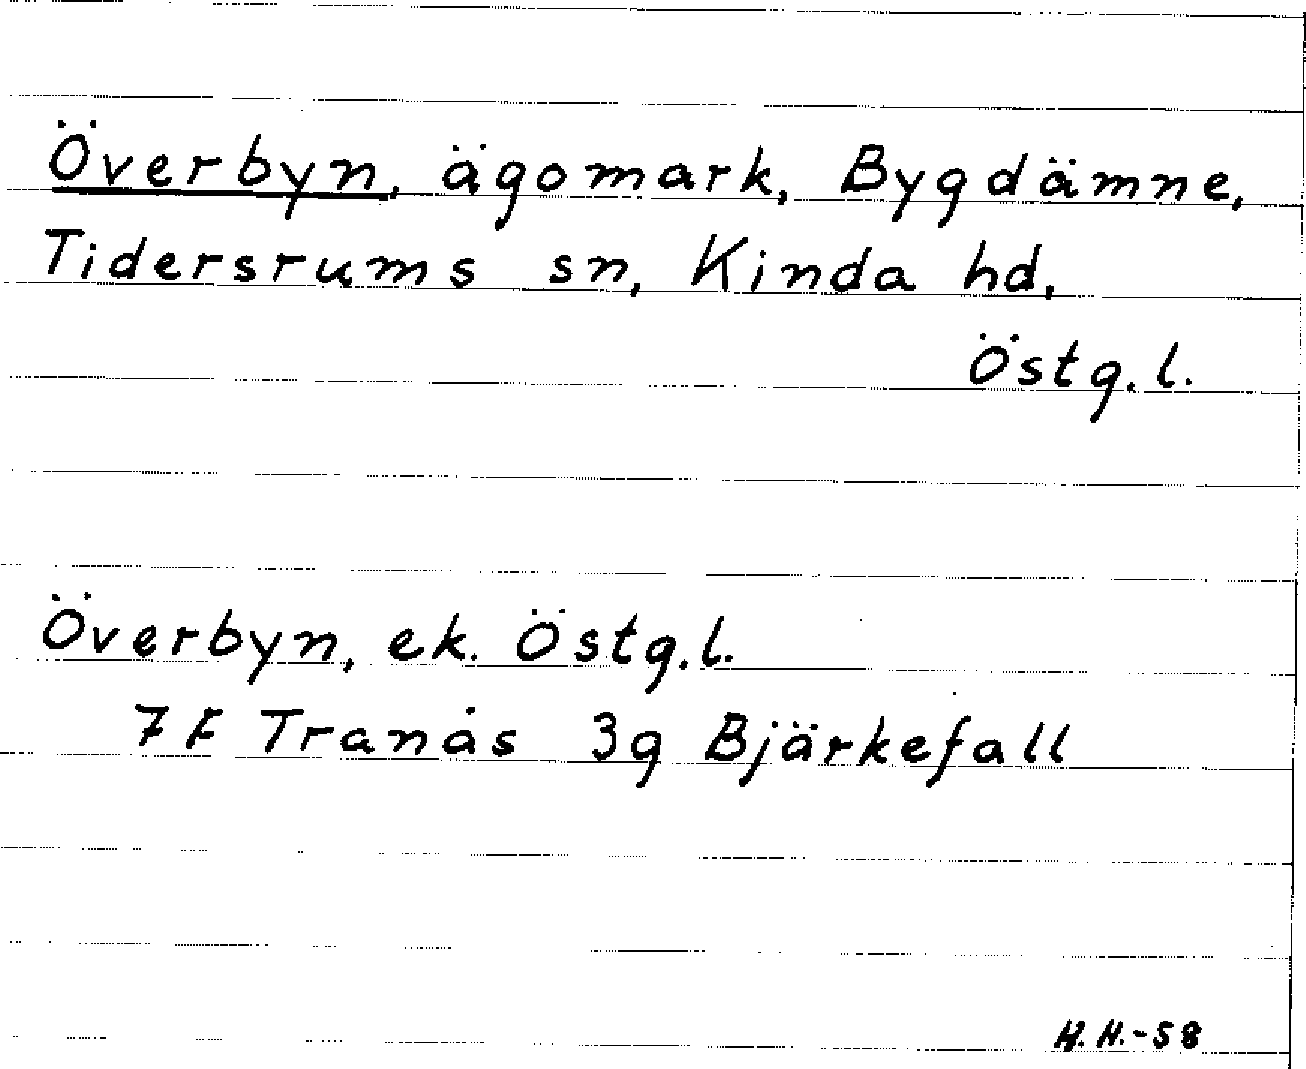 Överbyn, ägomark, Bygdämne,
Tidersrums sn, Kinda hd,
Östg.l.
Överbyn, ek. Östg.l.
7 F Tranås 3g Bjärkefall
H.H.-58